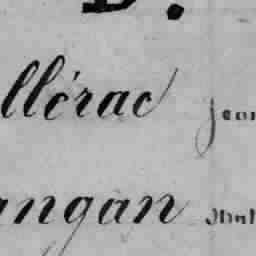 D.
llérac jean
angan